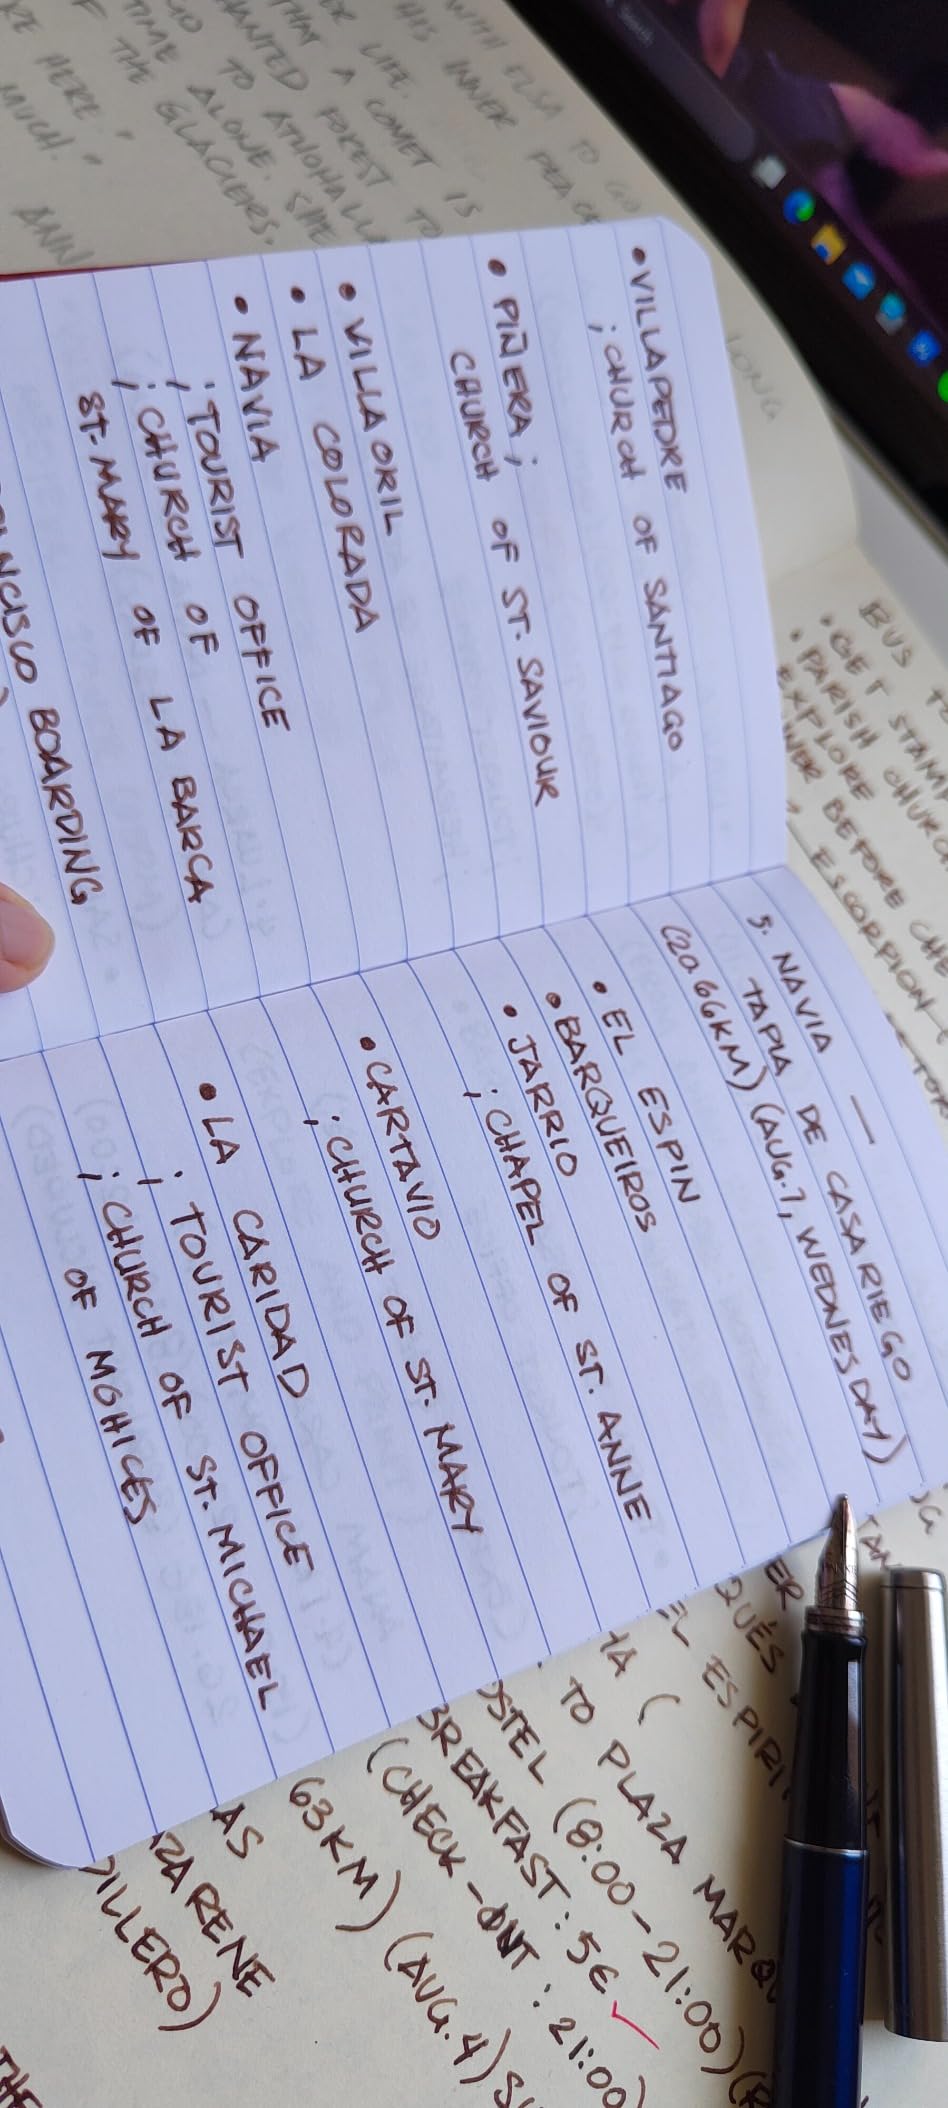 • VILLAPEDRE
; CHURCH OF SANTIAGO
• PIÑERA;
CHURCH OF ST. SAVIOUR
• VILLAORIL
• LA COLORADA
• NAVIA
; TOURIST OFFICE
; CHURCH OF LA BARCA
; ST. MARY OF
BOARDING
5. NAVIA —
TAPIA DE CASARIEGO
(20.66KM) (AUG. 7, WEDNESDAY)
• EL ESPIN
• BARQUEIROS
• JARRIO
; CHAPEL OF ST. ANNE
• CARTAVIO
; CHURCH OF ST. MARY
• LA CARIDAD
; TOURIST OFFICE
; CHURCH OF ST. MICHAEL
; OF MOHICES
WITH ELSA TO GO
HIS INNER
LIFE.
A COMET IS
THAT FOREST TO
TO ATHOHALL
TIME ALONE. SHE
THE GLACIERS.
HERE."
MUCH."
ANN
LONG
BUS
• GET STAMP
• PARISH CHURCH
EXPLORE
BEFORE CHE
ESCORPION
QUÉS
EL ESPIRI
TO PLAZA MARQU
(8:00-21:00)
BREAKFAST: 5€ ✓
(CHECK-OUT: 21:00)
63KM) (AUG. 4)
AS
THE